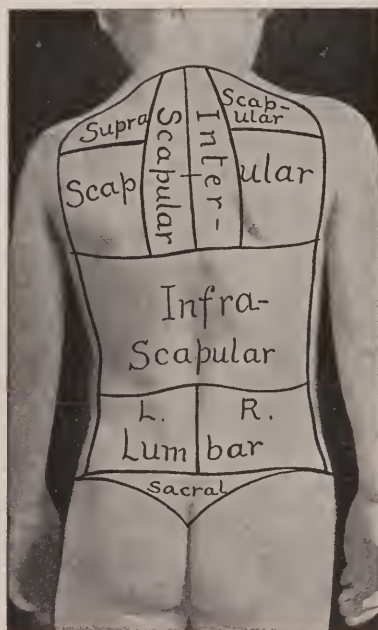 Supra
Scap-
ular
Scapular
Inter-
Scap
ular
Infra-
Scapular
L. R.
Lumbar
Sacral